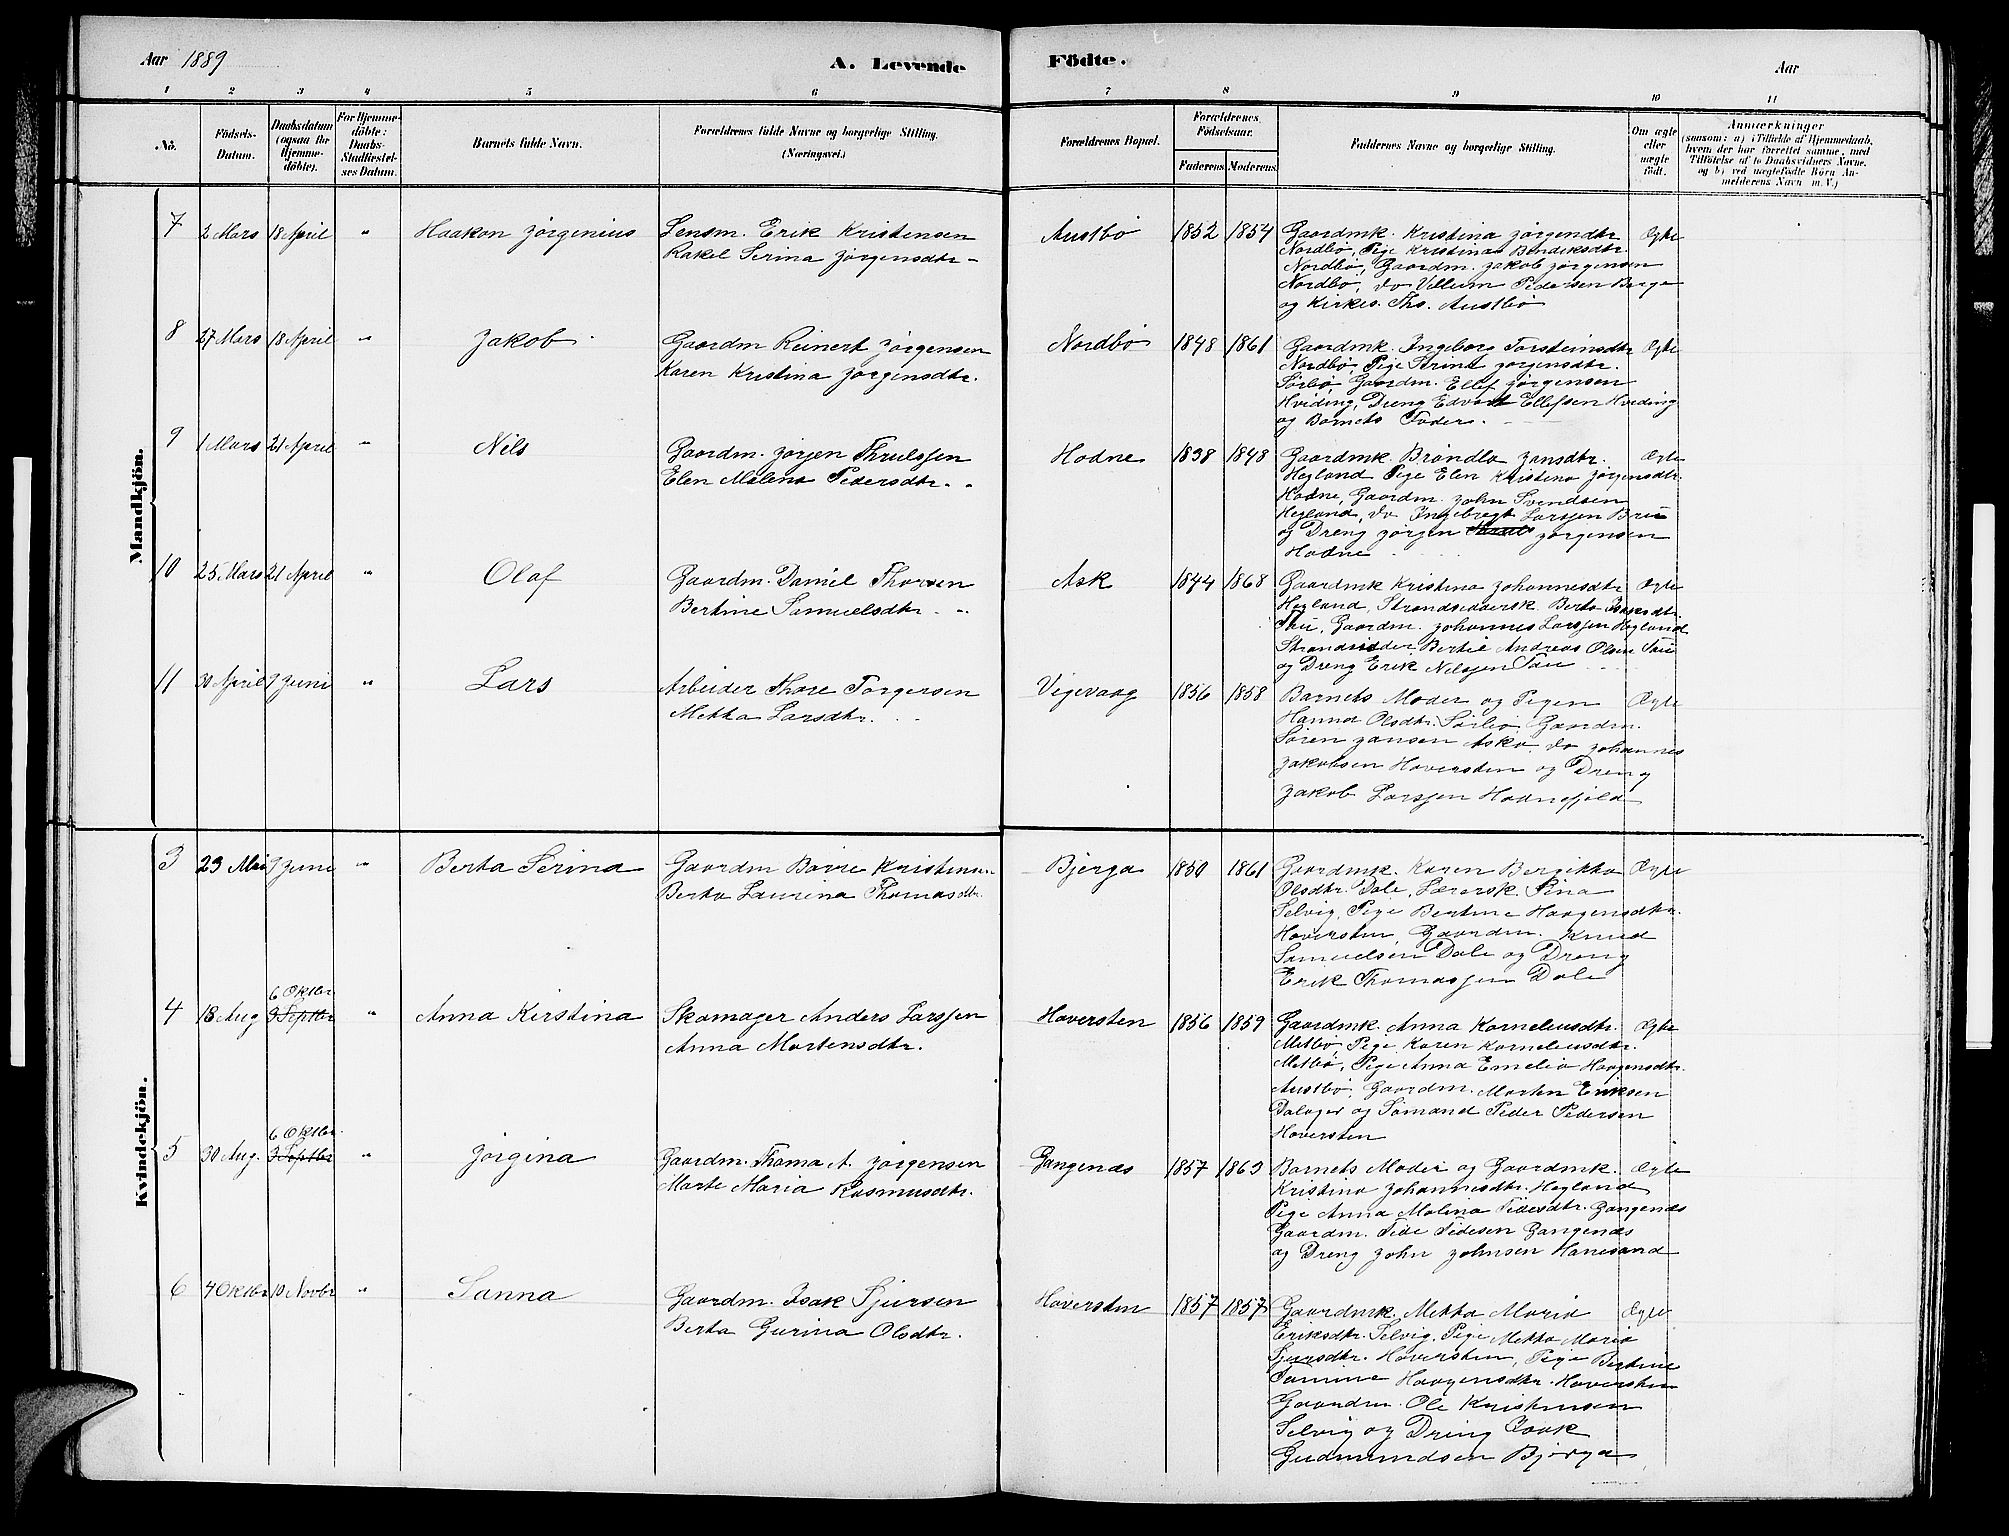 Aar 1889
A. Levende
Födte.
Aar
1 2 3 4 5 6 7 8 9 10 11
No.
Födsels-
Datum.
Daabsdatum
(ogsaa for
Hjemme-
döbte).
For Hjemme-
döbte:
Daabs-
Stadfæstel-
ses Datum.
Barnets fulde Navn.
Forældrenes fulde Navne og borgerlige Stilling.
(Næringsvei.)
Forældrenes Bopæl.
Forældrenes
Födselsaar.
Faderens Moderens
Faddernes Navne og borgerlige Stilling.
Om ægte
eller
uægte
født.
Anmærkninger
(saasom: a) i Tilfælde af Hjemmedaab,
hvem der har forrettet samme, med
Tilföielse af to Daabsvidners Navne.
og b) ved uægtefödte Börn An-
melderens Navn m. V.)
Mandkjön.
7 2 Mars 18 April " Haakon Jørgenius
Lensm. Erik Kristensen
Rakel Serina Jørgensdtr -
Austbø 1852 1854
Gaardmk. Kristina Jørgendtr
Nordbø, Pige Kristina Bendiksdtr.
Nordbø, Gaardm. Jakob Jørgensen
Nordbø, do Villum Pedersen Berge
og Kirkes. Ths. Austbø
Ægte
8 27 Mars 18 April " Jakob
Gaardm Reinert Jørgensen
Karen Kristina Jørgensdtr.
Nordbø 1848 1861
Gaardmk. Ingeborg Torsteinsdtr
Nordbø, Pige Serina Jørgensdtr.
Sørbø, Gaardm. Ellef Jørgensen
Hviding, Dreng Edvart Ellefsen Hviding
og Barnets Fader.
Ægte
9 1 Mars 21 April " Nils
Gaardm. Jørgen Thrulssen
Elen Malena Pedersdtr. "
Hodne 1838 1848
Gaardmk. Brøndla Jansdtr.
Hegland Pige Elen Kristina Jørgensdtr.
Hodne, Gaardm. John Svendsen
Hegland, do Ingebregt Larssen Bru
og Dreng Jørgen Jørgensen
Hodne
Ægte
10 25 Mars 21 April " Olaf
Gaardm. Daniel Thorsen
Bertine Samuelsdtr. "
Ask 1844 1868
Gaardmk Kristina Johannesdtr
Hegland, Strandsiddersk. Berta Isaksdtr.
Tau, Gaardm. Johannes Larssen Hegland
Strandsidder Bertil Andreas Olsen Tau
og Dreng Erik Nilssen Tau
Ægte
11 30 April 9 Juni " Lars
Arbeider Thore Torgersen
Metta Larsdtr.
Vigevaag 1856 1858
Barnets Moder og Pigen
Hanna Olsdtr. Sørbø, Gaardm.
Søren Jansen Aske, do Johannes
Jakobsen Haversten og Dreng
Jakob Larssen Hodnefjeld
Ægte
Kvindekjön.
3 23 Mai 9 Juni " Berta Serina
Gaardm Baare Kristensen
Berta Laurina Thomasdtr.
Bjerga 1850 1861
Gaardmk. Karen Bergitta
Olsdtr. Dale, Lærersk. Sina
Selvig, Pige Bertine Haagensdtr.
Haversten, Gaardm. Knud
Samuelsen Dale og Dreng
Erik Thomassen Dale
Ægte
6 Oktbr
4 18 Aug 3 Septbr " Anna Kirstina
Skomager Anders Larssen
Anna Mortensdtr.
Haversten 1856 1859
Gaardmk. Anna Korneliusdtr.
Meltbø, Pige Karen Korneliusdtr.
Meltbø, Pige Anna Emelia Haagensdtr.
Austbø, Gaardm. Morten Eriksen
Dalager og Sømand Peder Pedersen
Haversten
Ægte
6 Oktbr.
5 30 Aug. 3 Septbr " Jørgina
Gaardm. Thoma A. Jørgensen
Marte Maria Rasmusdtr.
Gangenæs 1857 1863
Barnets Moder og Gaardmk.
Kristina Johannesdtr. Hegland
Pige Anna Malena Tidesdtr. Gangenæs
Gaardm. Tide Tidesen Gangenæs
og Dreng John Johnsen Hanesand
Ægte
6 4 Oktbr 10 Novbr " Sanna
Gaardm. Isak Sjursen
Berta Gurina Olsdtr.
Haversten 1857 1857
Gaardmk. Metta Maria
Eriksdtr. Selvig, Pige Metta Maria
Sjursdtr. Haversten, Pige Bertine
Tomine Haagensdtr. Haversten
Gaardm. Ole Kristensen
Selvig og Dreng Isak
Gudmundsen Bjerga
Ægte